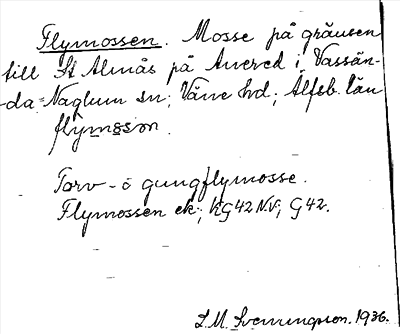 Flymossen. Mosse på gränsen
till St Almås på Anered i Vassän-
-da-Naglum sn; Väne hd; Älfsb. län
flymosson.
Torv- o gungflymosse.
Flymossen ek; KG42NV; G42.
L.M. Svenungsson. 1936.